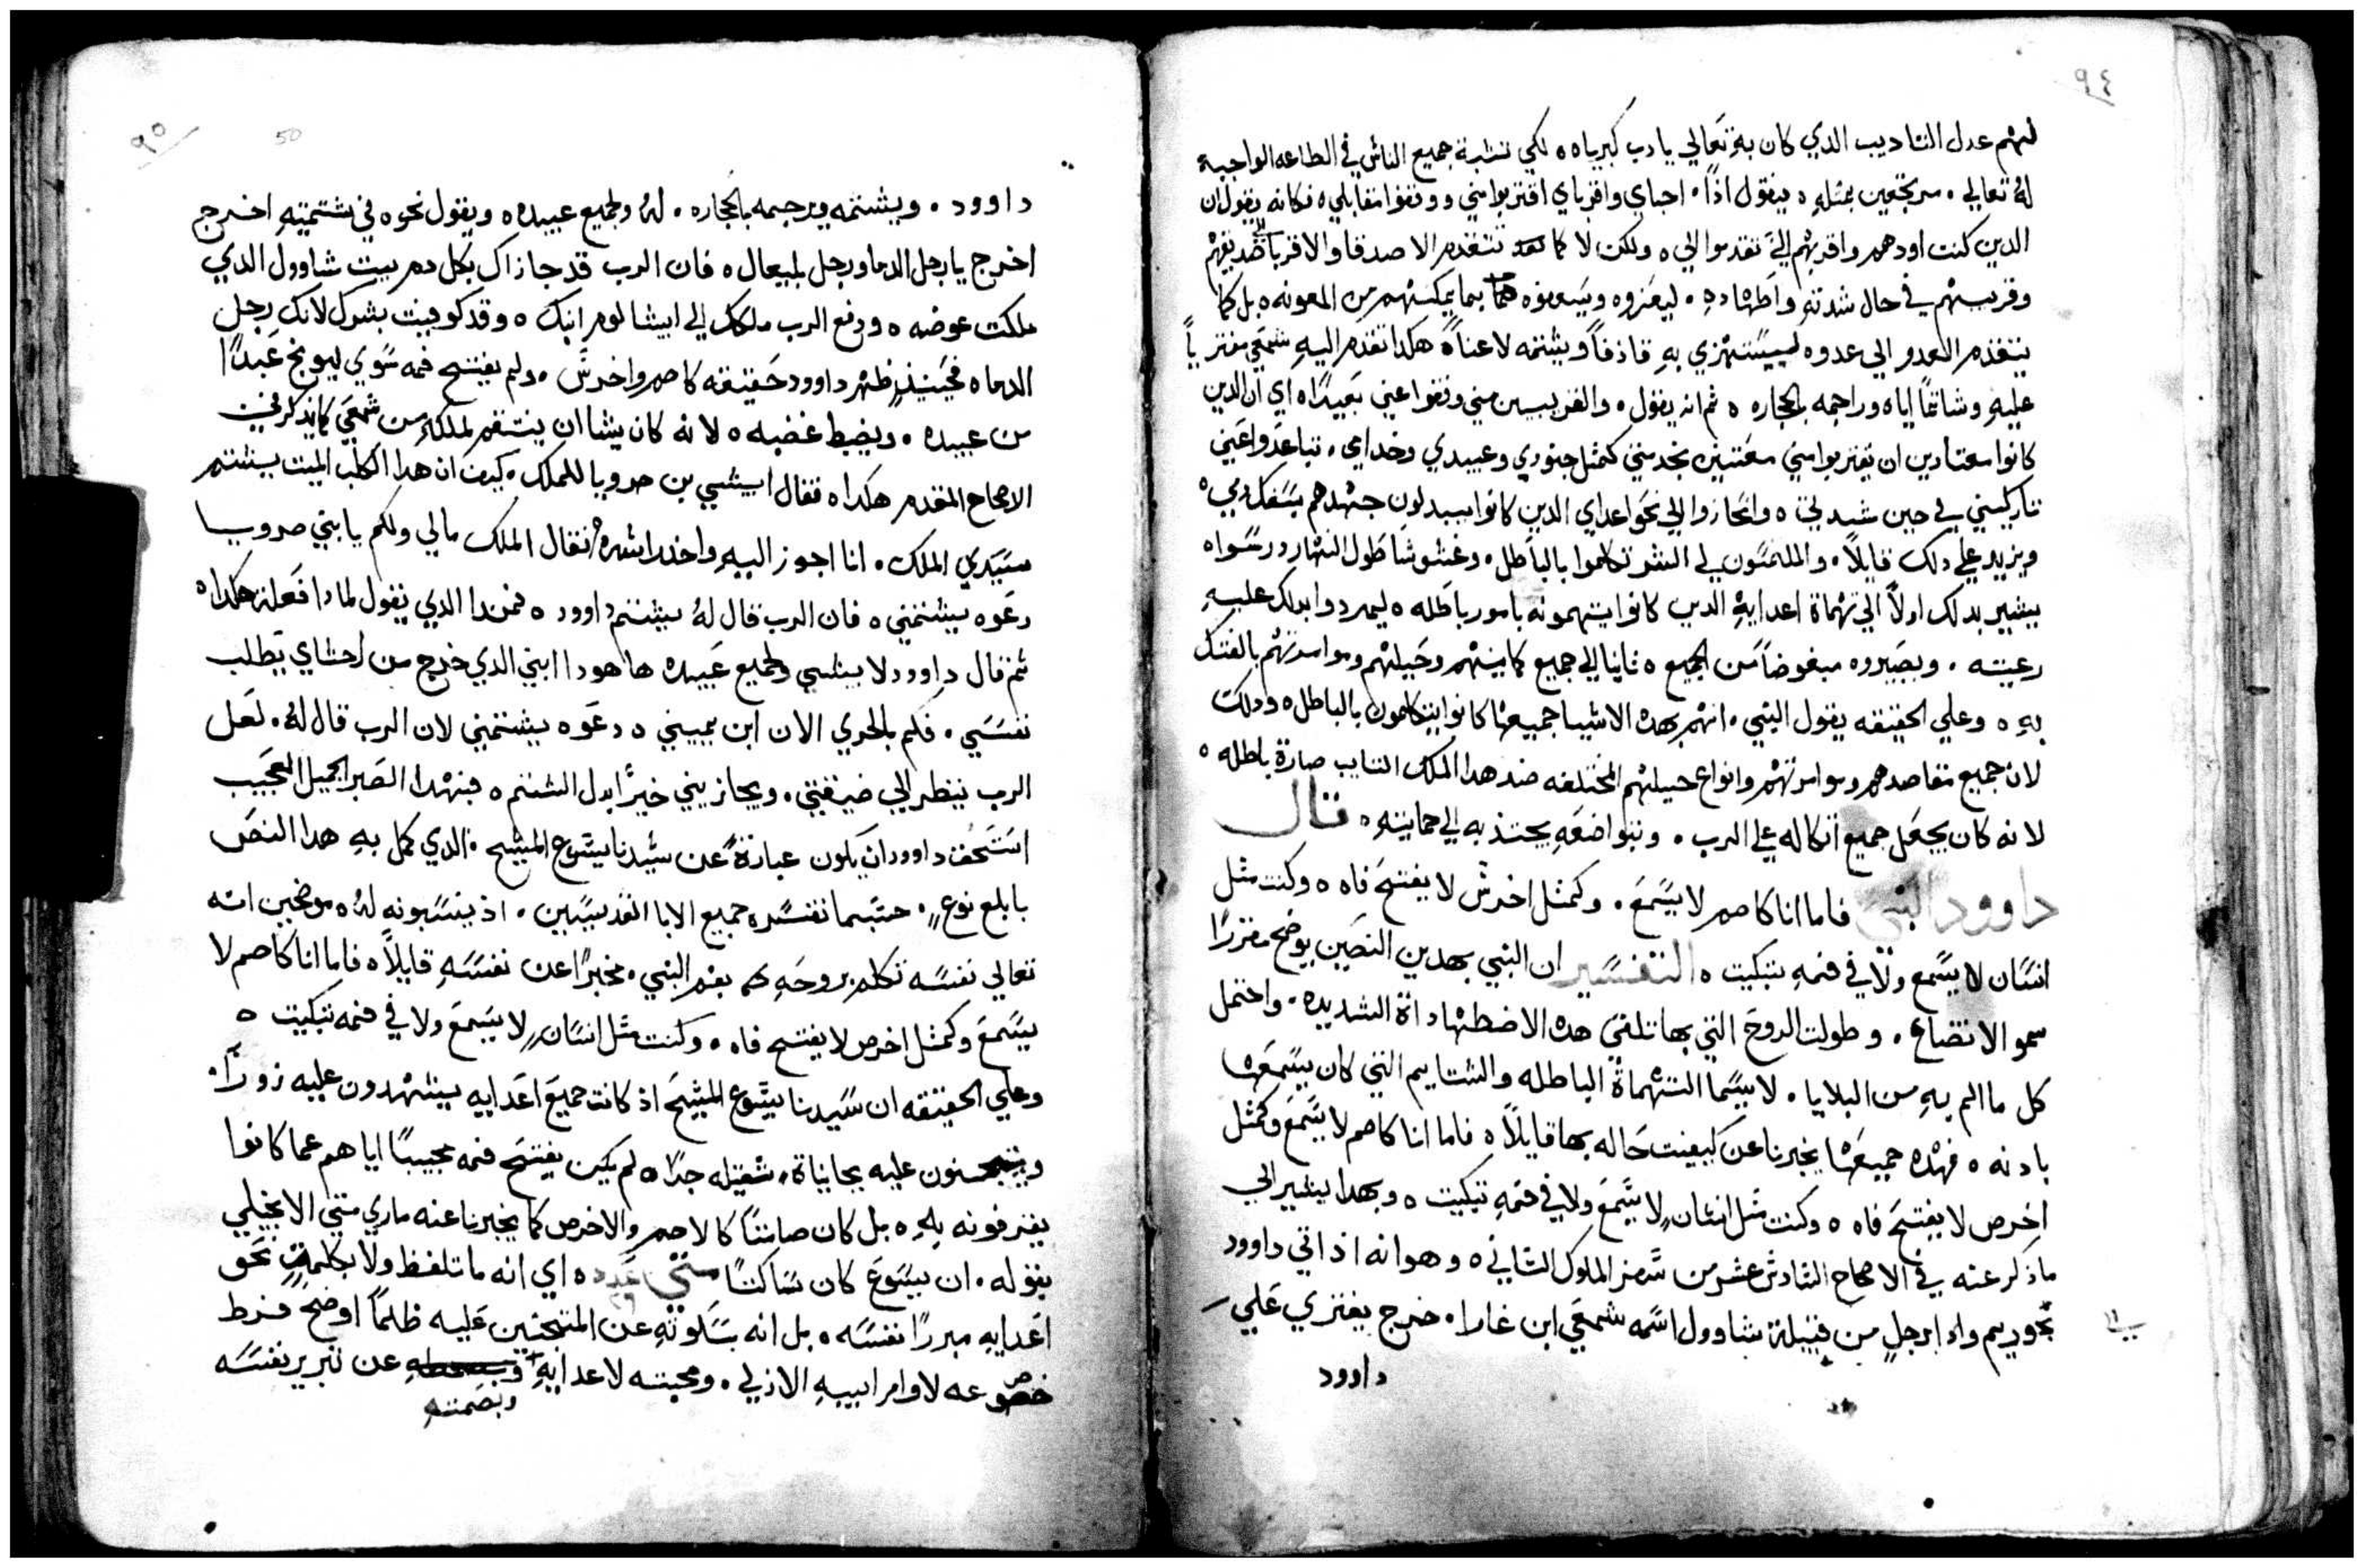 ٩٤
لهم عدل التاديب الذي كان به تعالي يادب كبرياه ه لكي نشبة جميع الناس في الطاعه الواجبة
لهُ تعالي . مرتجعين بمثله ه فيقول اذاً . احباي واقرباي اقتربوا مني ووقفوا مقابلي ه فكانه يقول ان
الدين كنت اودهمر واقربهم اليَّ تقدموا الي ه ولكن لا كما تتقدم الاصدقا والاقربا الي صديقهم
وقريبهم في حال شدته واضطهاده . ليعزوه ويسعفوه بما يمكنهم من المعونه ه بل كما
يتقدم العدو الي عدوه ليستهزي به قادفاً ويشتمه لاعناً ه هكدا تقدم اليهِ شمعي مفترياً
عليهِ وشاتمًا اياه وراجمه بالحجاره ه ثم انه يقول . والقريبين مني وقفوا عني بعيداً ه اي ان الدين
كانوا معتادين ان يقتربوا مني معتنين بخدمتي كمثل جنودي وعبيدي وخدامي . تباعدوا عني
تاركيني في حين شدتي ه وانحازوا الي نحو اعداي الدين كانوا يبدلون جهدهم بسفك دمي ه
ويزيد علي دلك قايلاً . والملتمسون لي الشر تكلموا بالباطل . وغشوشا طول النهار درسوا ه
يشير بدلك اولاً الي تهماة اعدايهِ الدين كانوا يتهمونه بامور باطله ه ليمردوا بدلك عليهِ
رعيته . ويصيروه مبغوضاً من الجميع ه ثانيا الي جميع كماينهم وحيلهم وموامرتهم بالفتك
بهِ ه وعلي الحقيقه يقول النبي . انهم بهده الاشيا جميعها كانوا يتكلمون بالباطل ه ودلك
لان جميع مقاصدهمر وموامرتهم وانواع حيلهم المختلفه ضد هدا الملك التايب صارة باطله ه
لانه كان يجعل جميع اتكاله علي الرب . وبتواضعهِ يجتذبه الي حمايتهِ ه قال
داوود النبي فاما انا كاصمر لا يسمع . وكمثل اخرس لا يفتح فاه ه وكنت مثل
انسان لا يسمع ولا في فمهِ تبكيت ه التفسير ان النبي بهدين النصين يوضح مقررًا
سمو الاتضاع . وطولت الروح التي بها تلقي هده الاضطهاداة الشديده . واحتمل
كل ما الم بهِ من البلايا . لا سيما التهماة الباطله والشتايم التي كان يسمعها
بادنه ه فهده جميعها يخبرنا عن كيفيت حاله بها قايلاً ه فاما انا كاصم لا يسمع وكمثل
اخرص لا يفتح فاه ه وكنت مثل انسانٍ لا يسمع ولا في فمهِ تبكيت ه وبهدا يشير الي
ماذكر عنه في الاصحاح السادس عشر من سفر الملوك الثاني ه وهو انه اذ اتي داوود
بحوريم وادا برجل من قبيلة شاوول اسمه شمعي ابن غارا . خرج يفتري علي
داوود
٩٥
50
داوود . ويشتمه ويرجمه بالحجاره . لهُ ولجميع عبيده ه ويقول نحوه في شتيمتهِ اخرج
اخرج يارجل الدما ورجل بليعال ه فان الرب قد جازاك بكل دمر بيت شاوول الدي
ملكت عوضه ه ودفع الرب ملكك الي ابيشالومر ابنك ه وقد كوفيت بشرك لانك رجل
الدما ه فحينيذٍ ظهر داوود حقيقه كاصمر واخرس . ولم يفتح فمه سوي ليوبخ عبداً
من عبيده . ويضبط غضبه ه لانه كان يشا ان ينتقم لملكهِ من شمعي كما يذكر في
الاصحاح المتقدم هكدا ه فقال ابيشي بن صرويا للملك . كيف ان هدا الكلب الميت يشتم
سيدي الملك . انا اجوز اليهِ واخد راسه ه فقال الملك مالي ولكم يا بني صرويا
دعوه يشتمني ه فان الرب قال لهُ يشتم داوود ه فمن دا الدي يقول لمادا فعلة هكدا ه
ثم قال داوود لابيشي ولجميع عبيده هاهودا ابني الدي خرج من احشاي يطلب
نفسي . فكم بالحري الان ابن يميني ه دعوه يشتمني لان الرب قال لهُ . لعل
الرب ينظر الي ضيقتي . ويجازيني خيراً بدل الشتم ه فبهدا الصبر الجميل العجيب
استحق داوود ان يكون عبارةً عن سيدنا يسوع المسيح . الدي كمل به هدا النص
بابلع نوعٍ . حسبما تفسره جميع الابا القديسين . اذ ينسبونه لهُ ه موضحين انه
تعالي نفسه تكلم بروحهِ بفم النبي . مخبراً عن نفسهِ قايلاً ه فاما انا كاصم لا
يسمع وكمثل اخرص لا يفتح فاه . وكنت مثل انسانٍ لا يسمع ولا في فمه تبكيت ه
وعلي الحقيقه ان سيدنا يسوع المسيح اذ كانت جميع اعدايه يشهدون عليه زوراً .
ويتجنون عليه بجناياة . ثقيله جداً ه لم يكن يفتح فمه مجيبًا اياهم عما كانوا
يقرفونه بهِ ه بل كان صامتًا كالاصمر والاخرص كما يخبرنا عنه ماري متي الانجيلي
بقوله . ان يسوع كان ساكتًا متي ه اي انه ما تلفظ ولا بكلمةٍ نحو
اعدايهِ مبررًا نفسه . بل انه بسكوتهِ عن المتجنيين عليه ظلماً اوضح فرط
خضوعه لاوامر ابيهِ الازلي . ومحبته لاعدايهِ عن تبرير نفسه
وبصمته